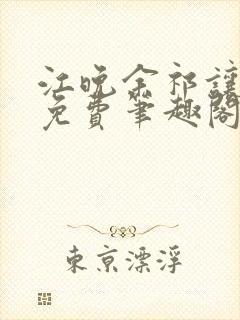 江晚余祁让
免費笔趣阁
東京漂浮